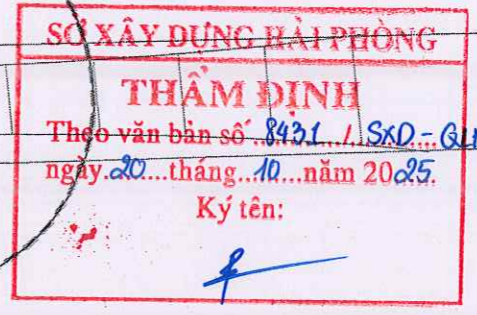 SỞ XÂY DỰNG HẢI PHÒNG
THẨM ĐỊNH
Theo văn bản số 8431 / SXD - QLH
ngày 20 tháng 10 năm 2025
Ký tên: